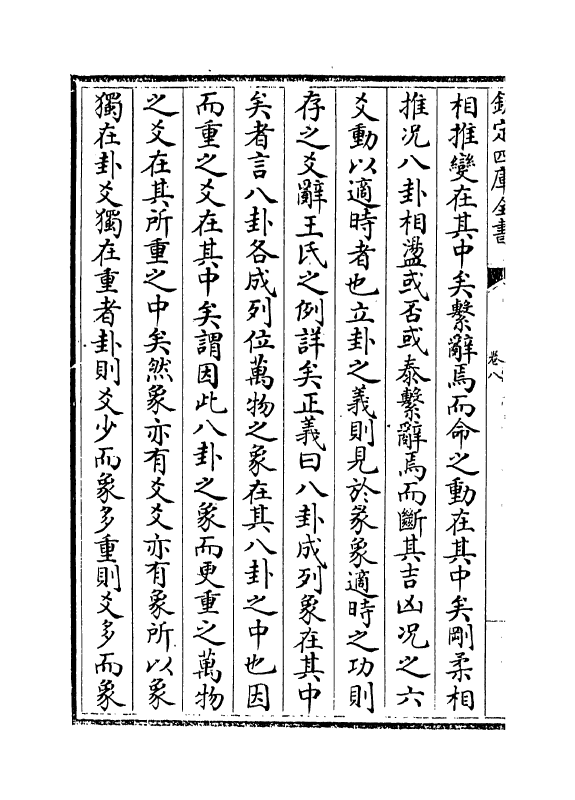 欽定四庫全書
卷八
相推變在其中矣繫辭焉而命之動在其中矣剛柔相
推况八卦相盪或否或泰繫辭焉而斷其吉凶况之六
爻動以適時者也立卦之義則見於彖象適時之功則
存之爻辭王氏之例詳矣正義曰八卦成列象在其中
矣者言八卦各成列位萬物之象在其八卦之中也因
而重之爻在其中矣謂因此八卦之象而更重之萬物
之爻在其所重之中矣然象亦有爻爻亦有象所以象
獨在卦爻獨在重者卦則爻少而象多重則爻多而象